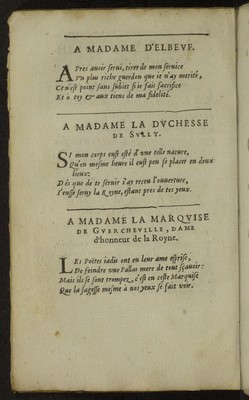 A MADAME D'ELBEVF.
APres auoir serui, tirer de mon seruice
Vn plus riche guerdon que ie n'ay merité,
Ce n'est point sans subiet si ie fais sacrifice
Et à toy & aux tiens de ma fidelité.
A MADAME LA DVCHESSE
DE SVLLY.
SI mon corps eust esté d'vne telle nature,
Qu'en mesme heure il eust peu se placer en deux
lieux;
Dés que de te seruir i'ay receu l'ouuerture,
I'eusse seruy la Royne, estant pres de tes yeux.
A MADAME LA MARQVISE
DE GVERCHEVILLE, DAME
d'honneur de la Royne.
LEs Poëtes iadis ont en leur ame esprise,
De feindre vne Pallas mere de tout sçauoir:
Mais ils se sont trompez, c'est en ceste Marquise
Que la sagesse mesme à nos yeux se fait voir.